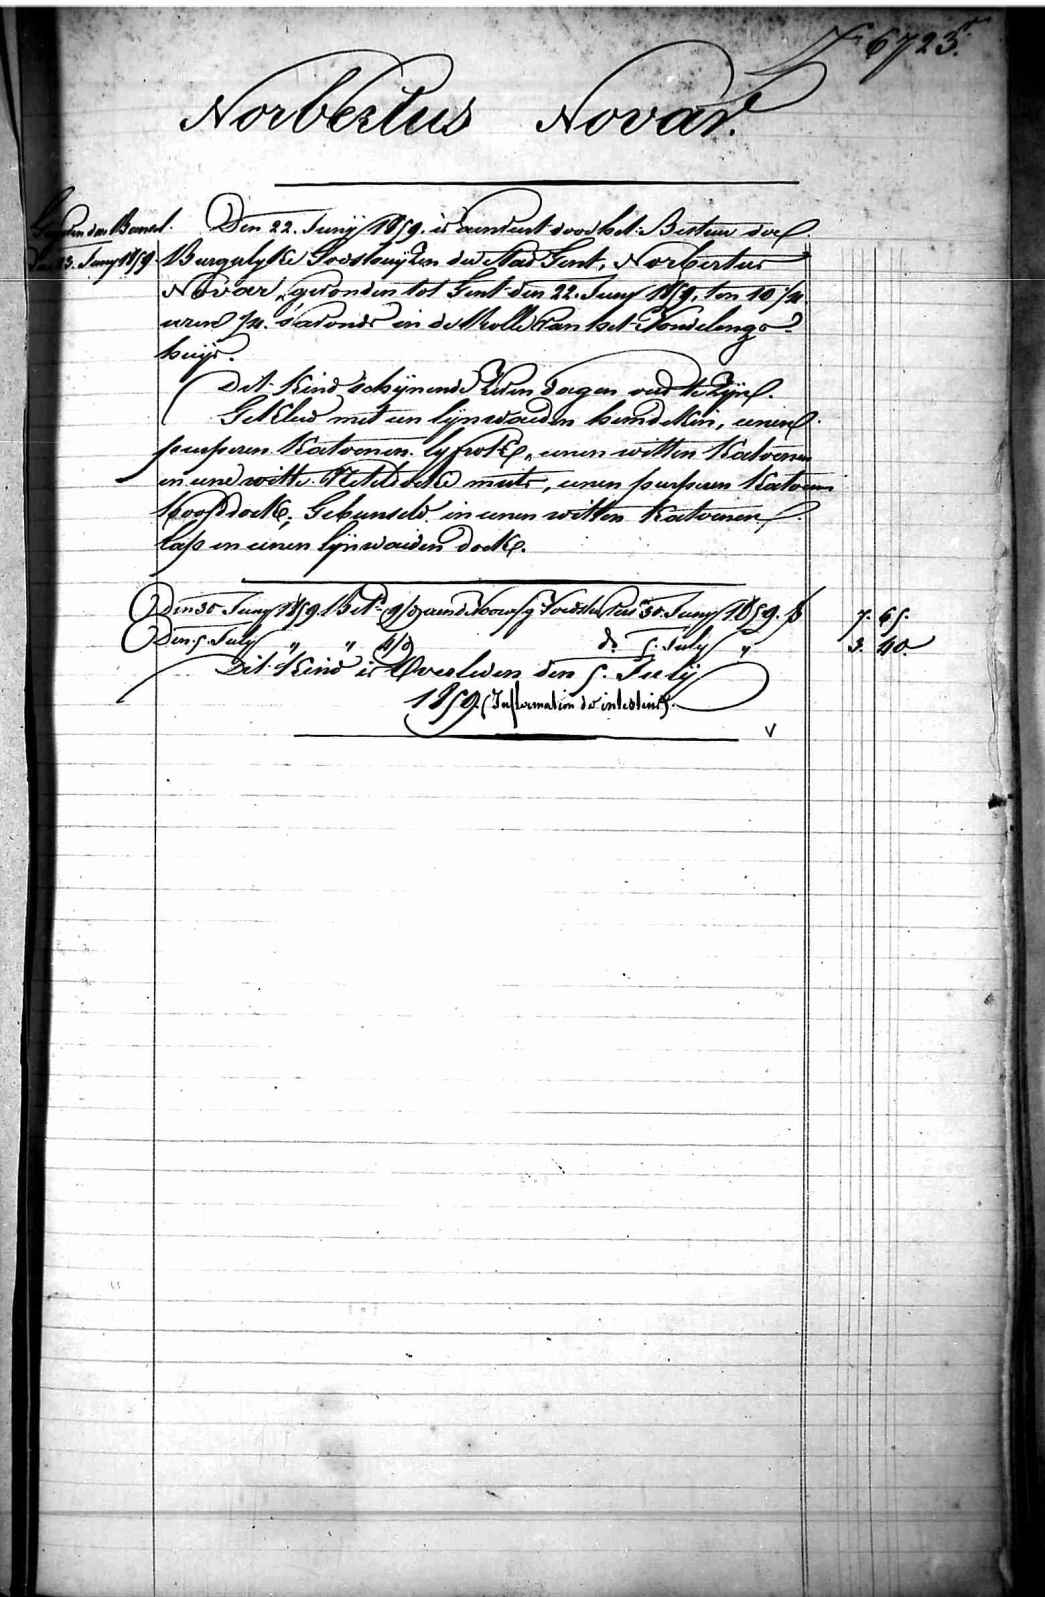 6723.
Norbertus Novar.
Den 22. Junij 1859. is aanveert door het Bestuer der
23. Juny 1859 Burgerlyke Godshuijzen der stad Gent, Norbertus
Novar, gevonden tot Gent den 22. Juny 1859, ten 10
uren s'avonds in de Rolle van het Vondelings-
huijs.
Dit Kind schijnende zeven dagen oud te zijn.
Gekleed met een lijnwaeden hemdeken, eenen
purperen Katoenen lyfrok, eenen witten Katoenen
en eene witte muts, eenen purperen Katoenen
Hoofddoek, Gebunseld in eenen witten Katoenen
lap en eenen lijnwaeden doek.
Den 30 Juny 1859. aen de Voorsz. Voedster 30. Juny 1859. f 7. 65.
Den 5. July " " do 5. July " 3. 40.
Dit Kind is Overleden den 5. Julij
1859. (Inflammation de intestins).
V